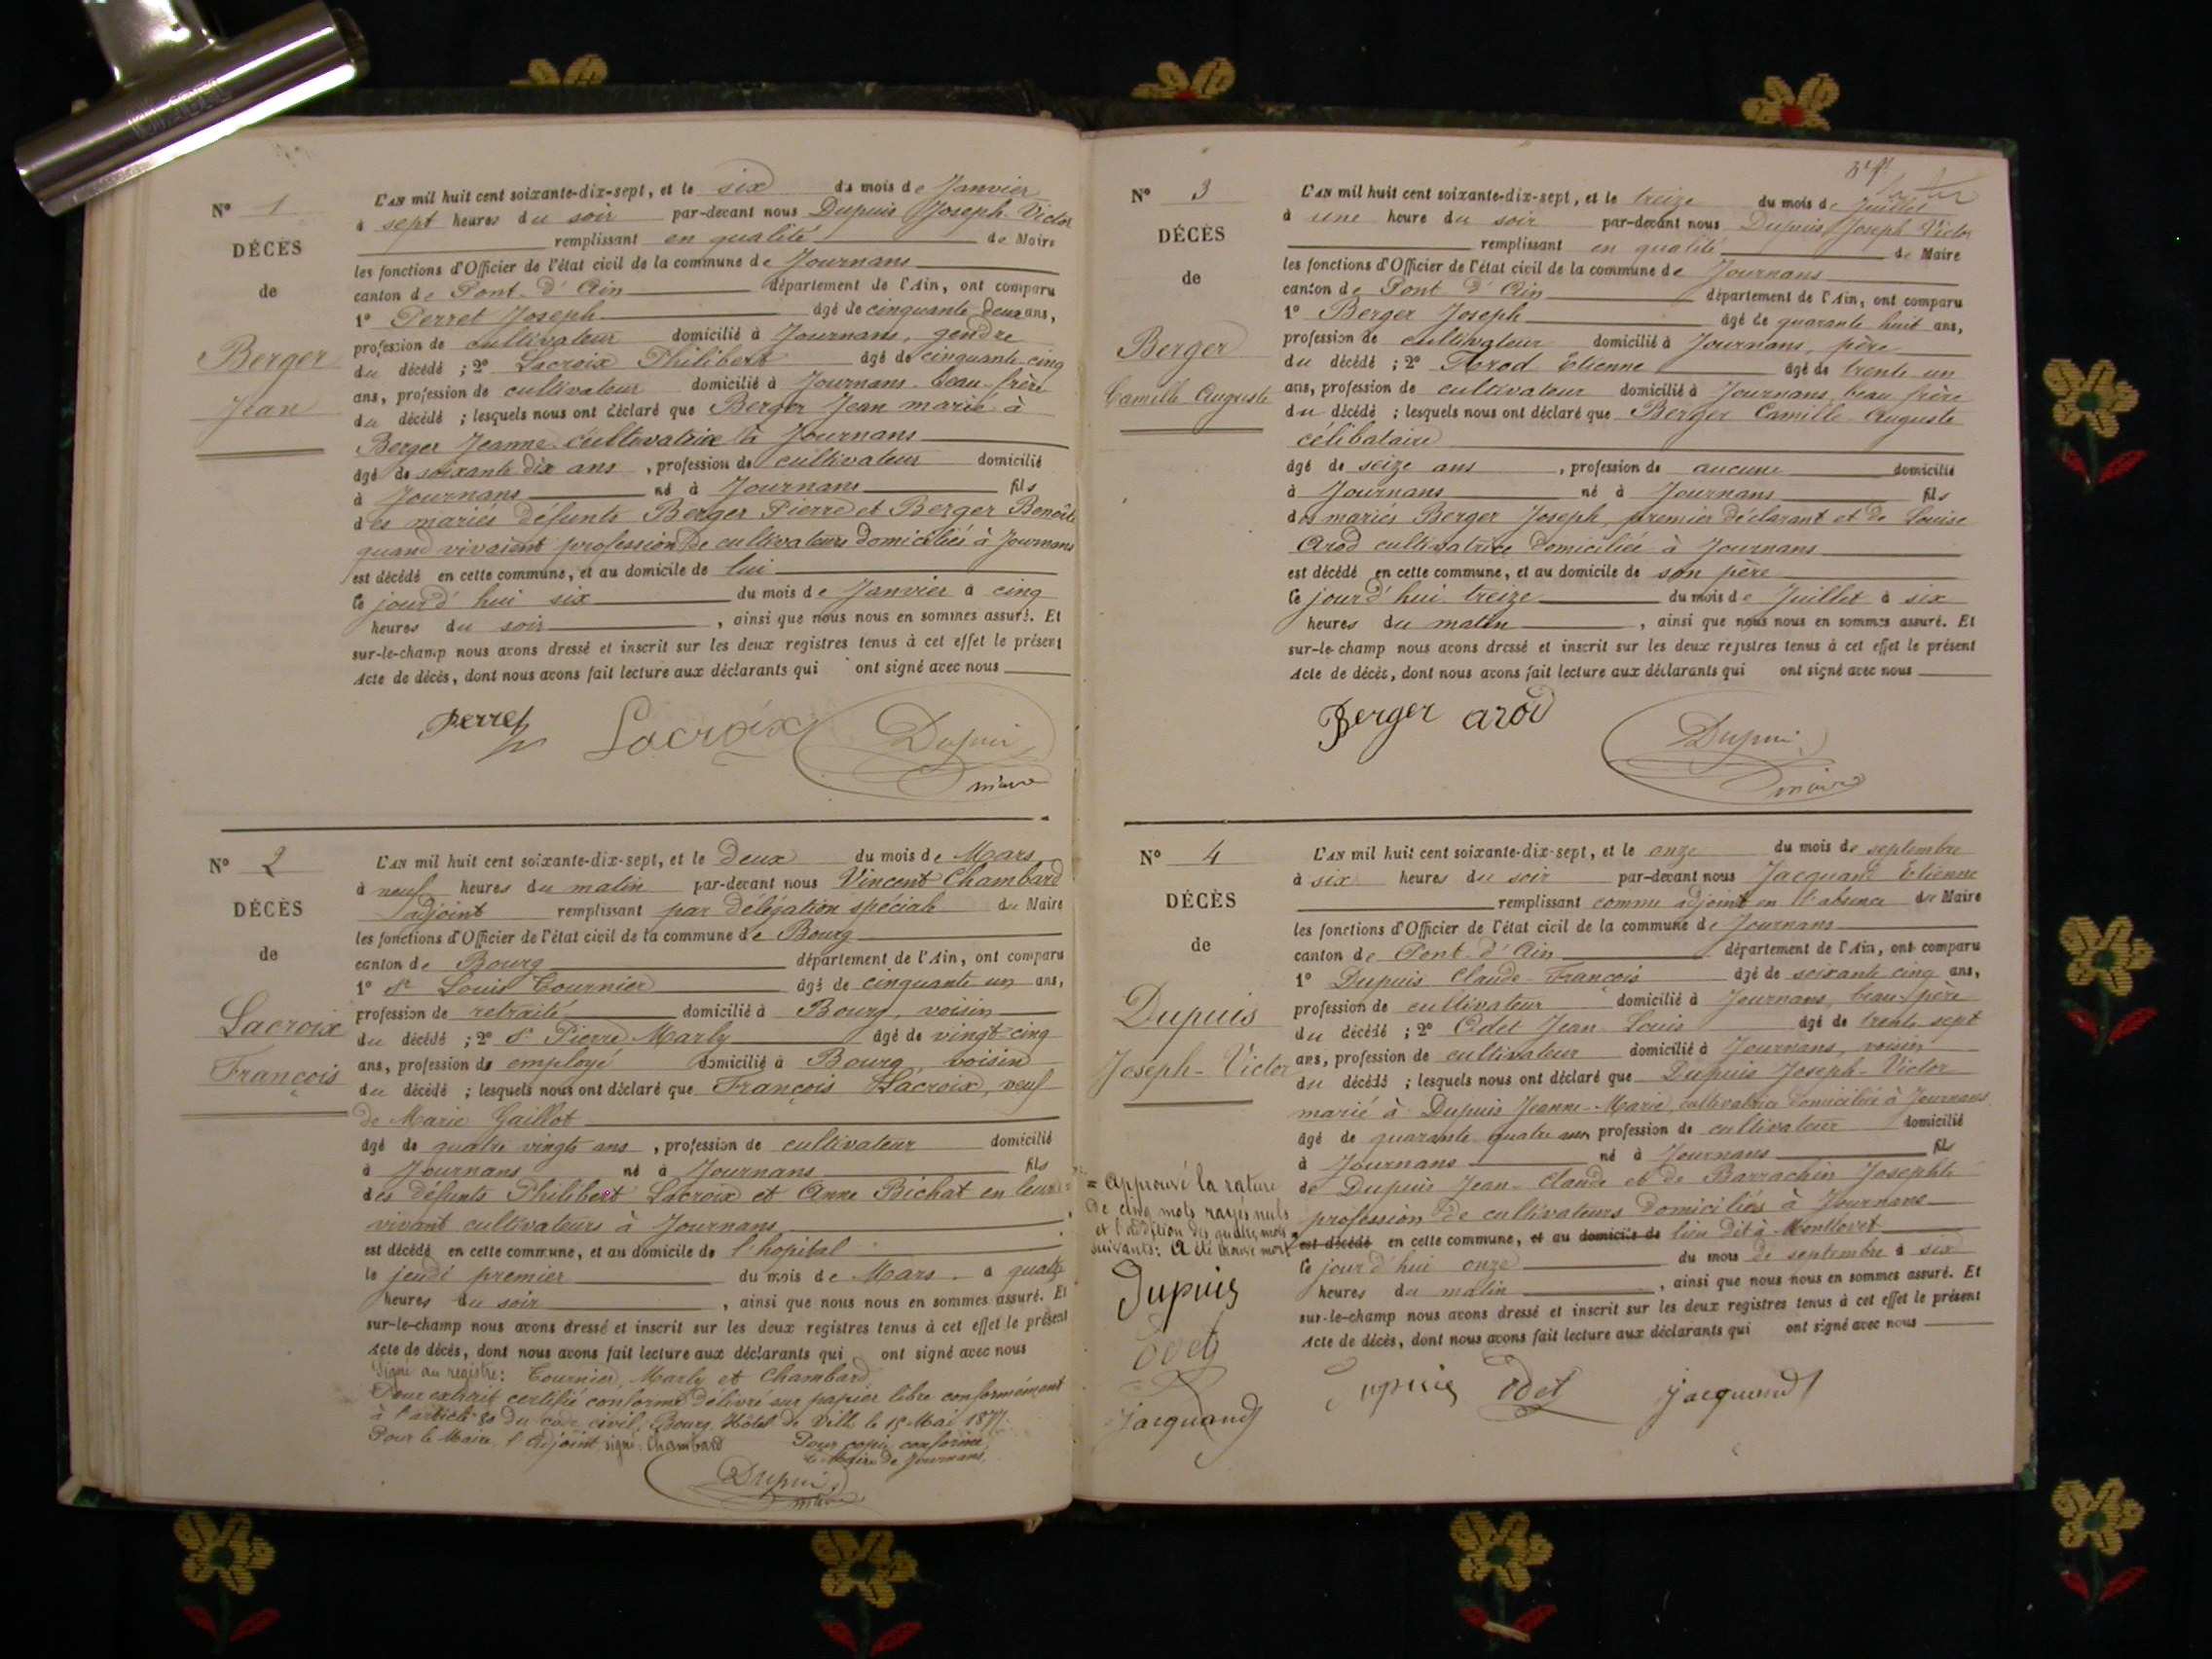 N° 1
DÉCÈS
de
Berger
Jean
L'AN mil huit cent soixante-dix-sept, et le six du mois de Janvier
à sept heures du soir par-devant nous Dupuis Joseph Victor
remplissant en qualité de Maire
les fonctions d'Officier de l'état civil de la commune de Journans
canton de Pont-d'Ain département de l'Ain, ont comparu
1° Perret Joseph âgé de cinquante deux ans,
profession de cultivateur domicilié à Journans, gendre
du décédé ; 2° Lacroix Philibert âgé de cinquante cinq
ans, profession de cultivateur domicilié à Journans beau-frère
du décédé ; lesquels nous ont déclaré que Berger Jean marié à
Berger Jeanne cultivatrice à Journans
âgé de soixante dix ans , profession de cultivateur domicilié
à Journans né à Journans fils
des mariés défunts Berger Pierre et Berger Benoîte
quand vivaient profession de cultivateurs domiciliés à Journans
est décédé en cette commune, et au domicile de lui
le jourd'hui six du mois de Janvier à cinq
heures du soir , ainsi que nous nous en sommes assuré. Et
sur-le-champ nous avons dressé et inscrit sur les deux registres tenus à cet effet le présent
Acte de décès, dont nous avons fait lecture aux déclarants qui ont signé avec nous
Perret Lacroix Dupuis
maire
N° 2
DÉCÈS
de
Lacroix
François
L'AN mil huit cent soixante-dix-sept, et le deux du mois de Mars
à neuf heures du matin par-devant nous Vincent Chambard
adjoint remplissant par délégation spéciale du Maire
les fonctions d'Officier de l'état civil de la commune de Bourg
canton de Bourg département de l'Ain, ont comparu
1° Sr Louis Tournier âgé de cinquante un ans,
profession de retraité domicilié à Bourg, voisin
du décédé ; 2° Sr Pierre Marly âgé de vingt-cinq
ans, profession de employé domicilié à Bourg voisin
du décédé ; lesquels nous ont déclaré que François Lacroix, veuf
de Marie Gaillot
âgé de quatre vingts ans , profession de cultivateur domicilié
à Journans né à Journans fils
des défunts Philibert Lacroix et Anne Bichat en leur
vivant cultivateurs à Journans
est décédé en cette commune, et au domicile de l'hopital
le jeudi premier du mois de Mars à quatre
heures du soir , ainsi que nous nous en sommes assuré. Et
sur-le-champ nous avons dressé et inscrit sur les deux registres tenus à cet effet le présent
Acte de décès, dont nous avons fait lecture aux déclarants qui ont signé avec nous
Signé au registre: Tournier, Marly et Chambard
Pour extrait certifié conforme délivré sur papier libre conformément
à l'article 80 du code civil, Bourg, Hôtel de Ville le 15 Mai 1877.
Pour le Maire, l'adjoint signé: Chambard Pour copie conforme,
le Maire de Journans,
Dupuis
maire
N° 3
DÉCÈS
de
Berger
Camille Auguste
L'AN mil huit cent soixante-dix-sept, et le treize du mois de Juillet
à une heure du soir par-devant nous Dupuis Joseph Victor
remplissant en qualité de Maire
les fonctions d'Officier de l'état civil de la commune de Journans
canton de Pont d'Ain département de l'Ain, ont comparu
1° Berger Joseph âgé de quarante huit ans,
profession de cultivateur domicilié à Journans, père
du décédé ; 2° Arod Etienne âgé de trente un
ans, profession de cultivateur domicilié à Journans, beau frère
du décédé ; lesquels nous ont déclaré que Berger Camille Auguste
célibataire
âgé de seize ans , profession de aucune domicilié
à Journans né à Journans fils
des mariés Berger Joseph, premier déclarant et de Louise
Arod cultivatrice domiciliée à Journans
est décédé en cette commune, et au domicile de son père
le jourd'hui treize du mois de Juillet à six
heures du matin , ainsi que nous nous en sommes assuré. Et
sur-le-champ nous avons dressé et inscrit sur les deux registres tenus à cet effet le présent
Acte de décès, dont nous avons fait lecture aux déclarants qui ont signé avec nous
Berger arod Dupuis
maire
N° 4
DÉCÈS
de
Dupuis
Joseph-Victor
L'AN mil huit cent soixante-dix-sept, et le onze du mois de septembre
à six heures du soir par-devant nous Jacquand Etienne
remplissant comme adjoint en l'absence du Maire
les fonctions d'Officier de l'état civil de la commune de Journans
canton de Pont-d'Ain département de l'Ain, ont comparu
1° Dupuis Claude-François âgé de soixante cinq ans,
profession de cultivateur domicilié à Journans, beau-père
du décédé ; 2° Odet Jean Louis âgé de trente sept
ans, profession de cultivateur domicilié à Journans, voisin
du décédé ; lesquels nous ont déclaré que Dupuis Joseph-Victor
marié à Dupuis Jeanne-Marie, cultivatrice domiciliée à Journans
âgé de quarante quatre ans profession de cultivateur domicilié
à Journans né à Journans fils
de Dupuis Jean-Claude et de Barrachin Josephte
profession de cultivateurs domiciliés à Journans
est décédé en cette commune, et au domicile de lieu dit à Montlovet
le jourd'hui onze du mois de septembre à six
heures du matin , ainsi que nous nous en sommes assuré. Et
sur-le-champ nous avons dressé et inscrit sur les deux registres tenus à cet effet le présent
Acte de décès, dont nous avons fait lecture aux déclarants qui ont signé avec nous
= Approuvé la rature
de cinq mots rayés nuls
et l'addition des quatre mots
suivants: A été trouvé mort
Dupuis
Odet
jacquand
Dupuis Odet jacquand